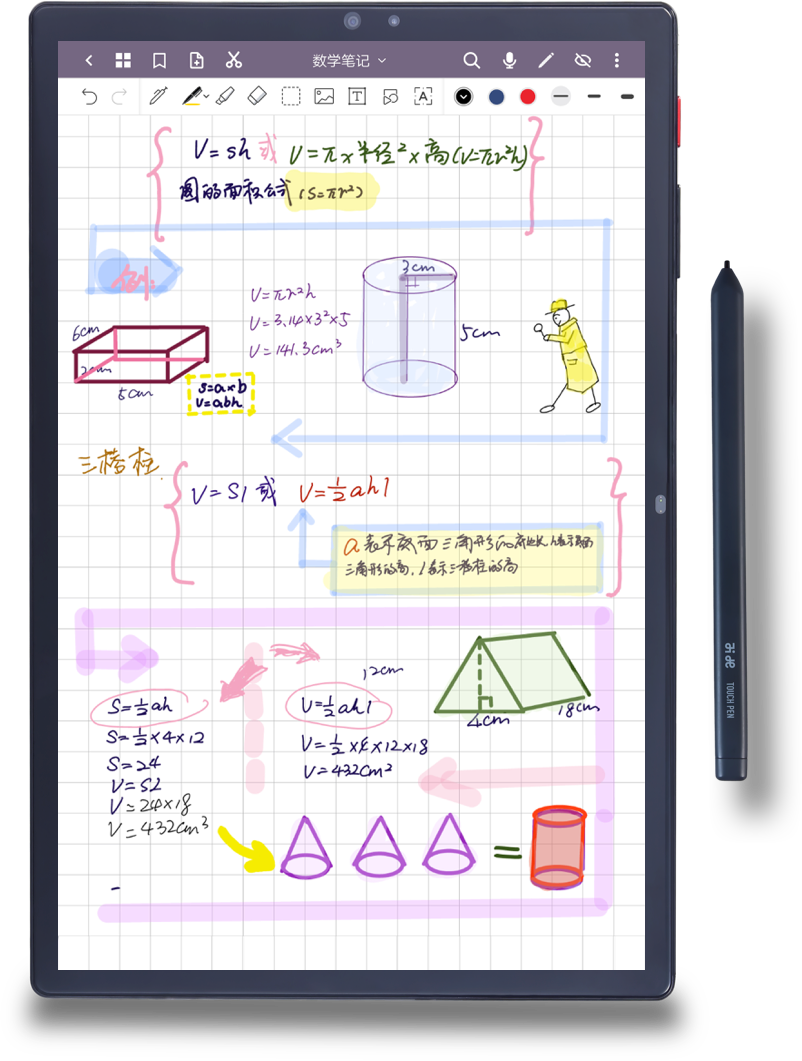 数学笔记
V=sh 或 V=π×半径²×高(V=πr²h)
圆的面积公式 (S=πr²)
例:
3cm
V=πr²h
V=3.14×3²×5
V=141.3cm³
5cm
6cm
2cm
5cm
S=a×b
V=abh
三棱柱
V=Sl 或 V=½ahl
a表示底面三角形的底边长,h表示底面
三角形的高,l表示三棱柱的高
12cm
4cm
18cm
S=½ah
S=½×4×12
S=24
V=Sl
V=24×18
V=432cm³
V=½ahl
V=½×4×12×18
V=432cm²
=
-
TOUCH PEN